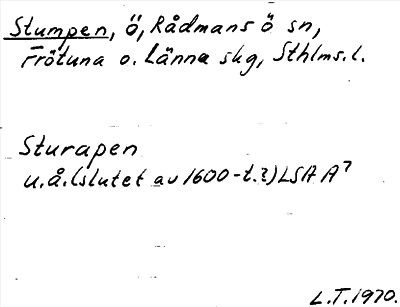 Stumpen, Ö, Rådmans ö sn,
Frötuna o. Länna skg, Sthlms. l.
Sturapen
u.å. (slutet av 1600-t.?) LSA A7
L.T. 1970.